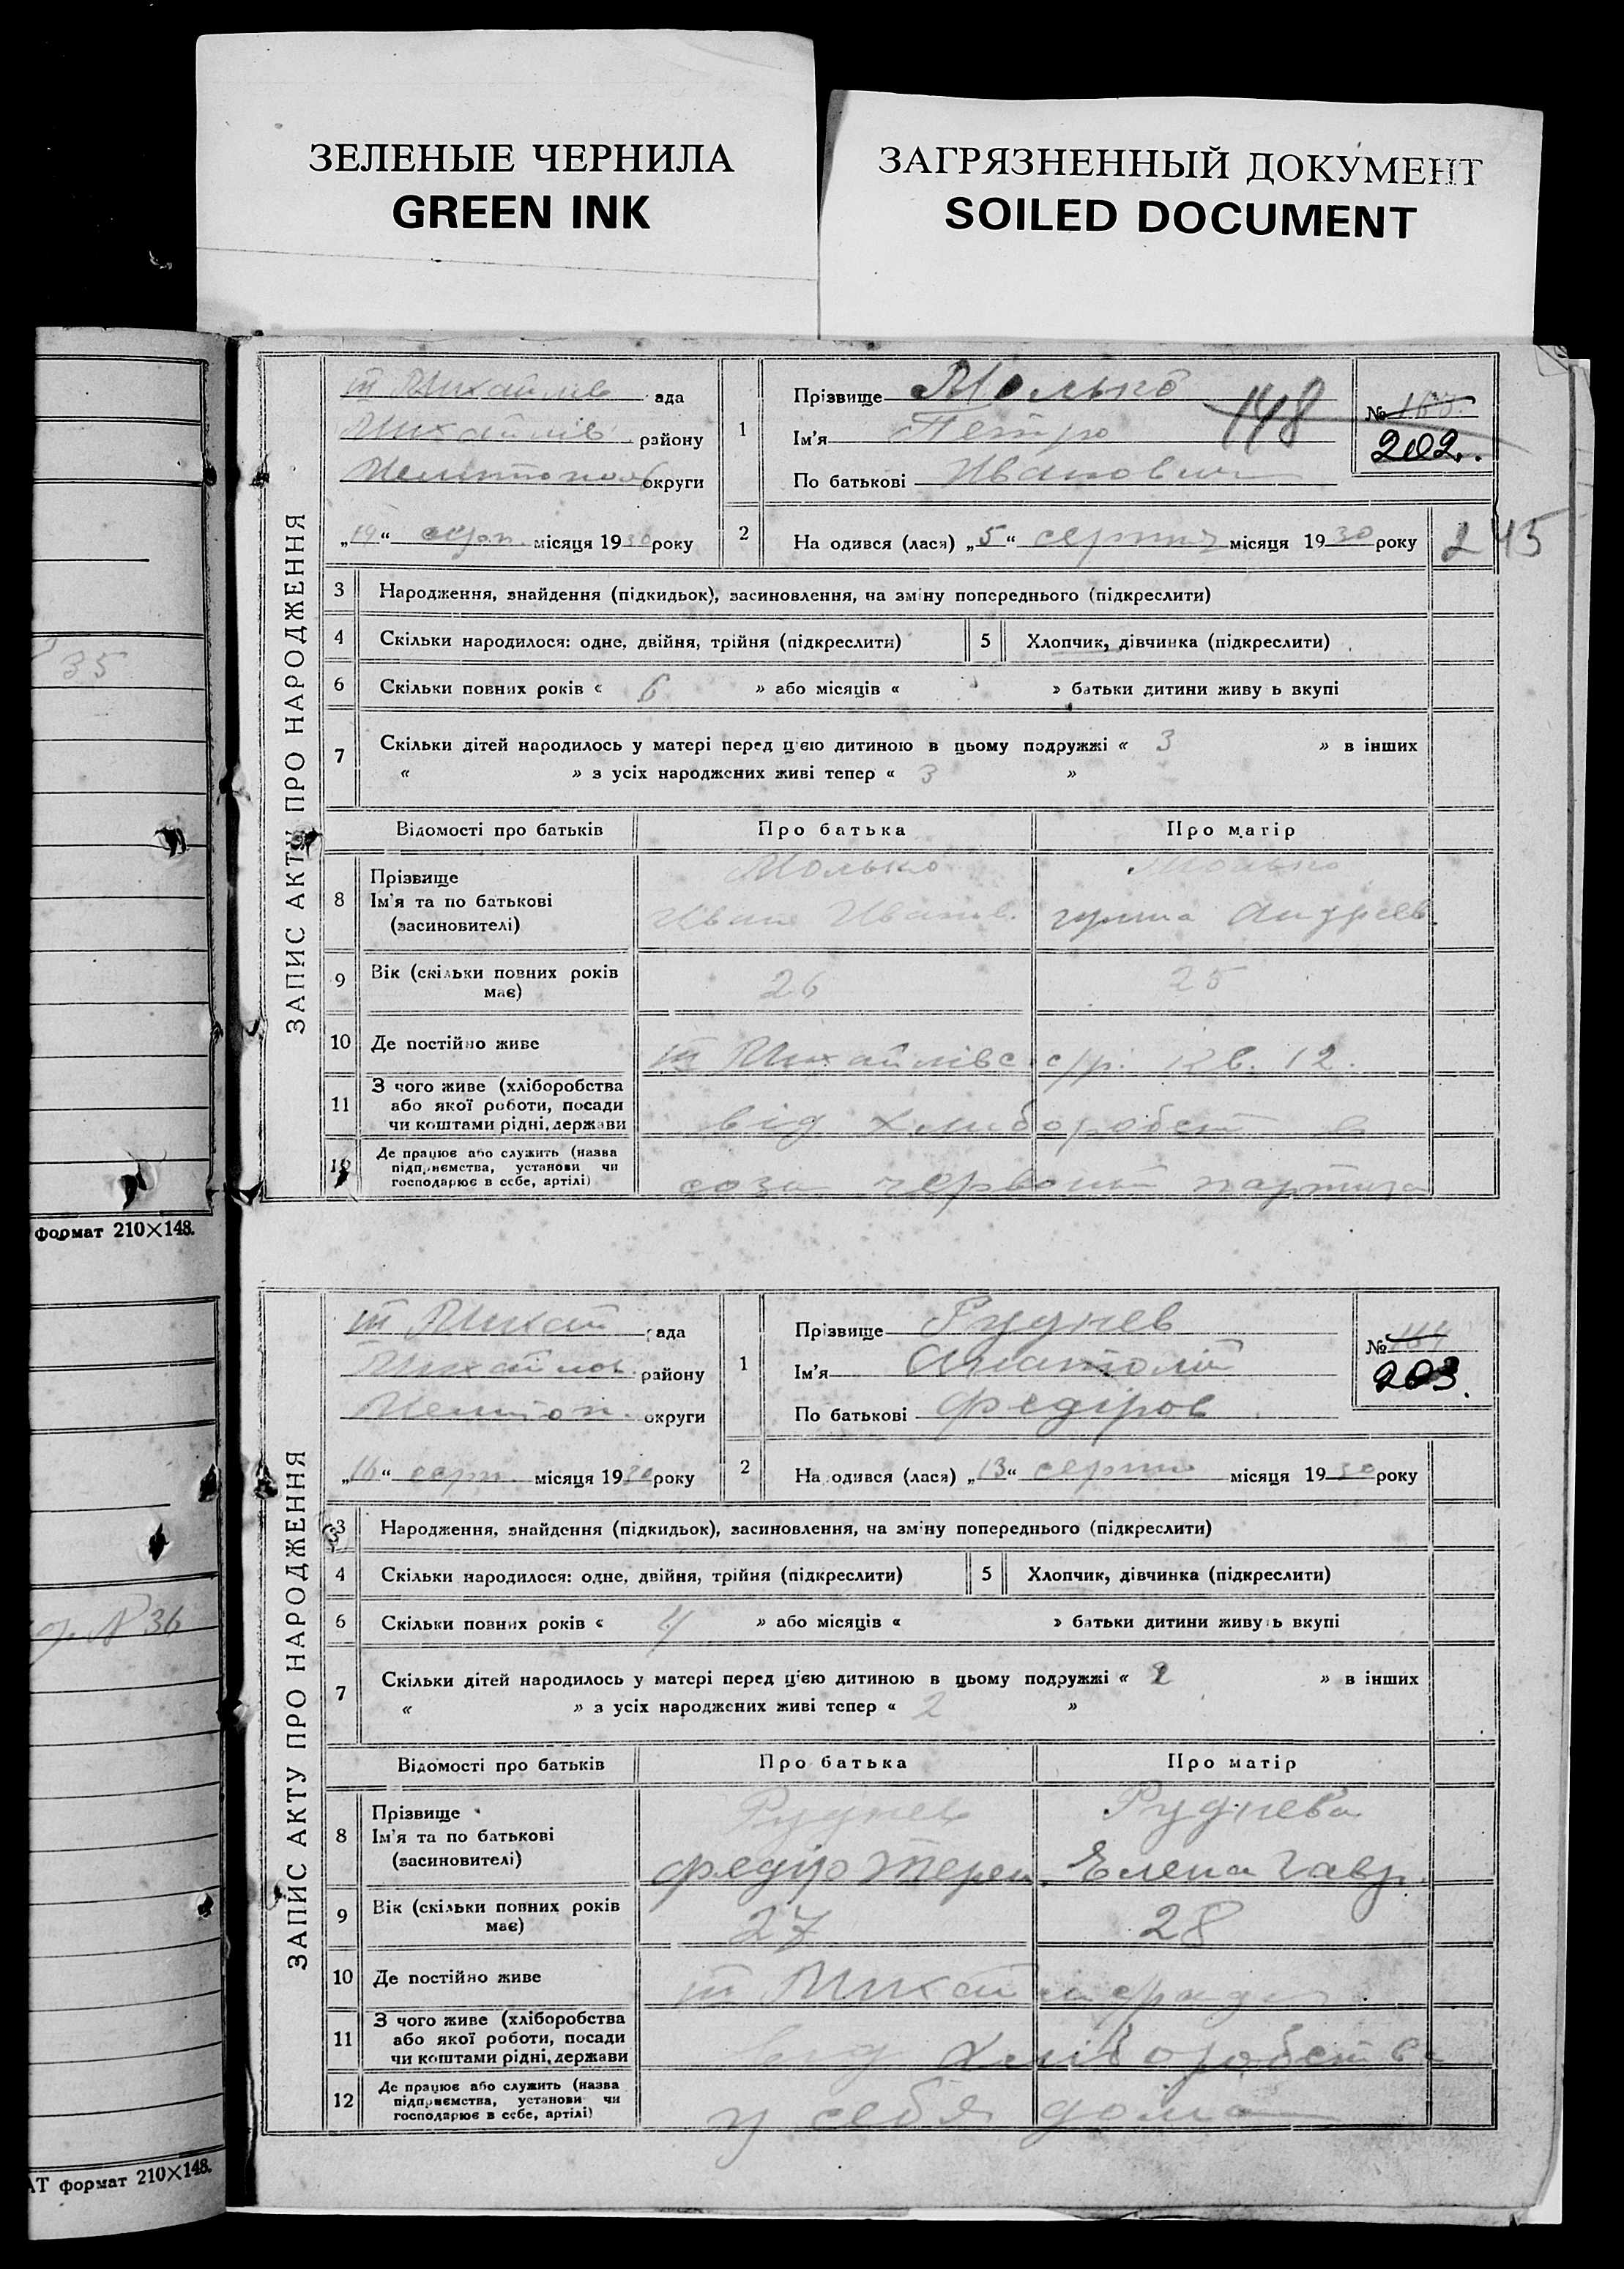 ЗЕЛЕНЫЕ ЧЕРНИЛА
GREEN INK
ЗАГРЯЗНЕННЫЙ ДОКУМЕНТ
SOILED DOCUMENT
35
формат 210×148.
N 36
АТ формат 210×148.
ЗАПИС АКТУ ПРО НАРОДЖЕННЯ
т Михайлів ада
Михайлів району
округи
„19“ серп. місяця 1930 року
1
Прізвище Молько
Ім'я Петро
По батькові Иванович
148
№
202.
2
На одився (лася) „5“ серпня місяця 1930 року
245
3 Народження, знайдення (підкидьок), засиновлення, на зміну попереднього (підкреслити)
4 Скільки народилося: одне, двійня, трійня (підкреслити) 5 Хлопчик, дівчинка (підкреслити)
6 Скільки повних років « 6 » або місяців « » батьки дитини живу ь вкупі
7 Скільки дітей народилось у матері перед цією дитиною в цьому подружжі « 3 » в інших
« » з усіх народжених живі тепер « 3 »
Відомості про батьків Про батька Про матір
8 Прізвище Молько Молько
Ім'я та по батькові Иван Иванов. Андреев.
(засиновителі)
9 Вік (скільки повних років має) 26 25
10 Де постійно живе т Михайлівс. с/р. кв. 12.
11 З чого живе (хліборобства
або якої роботи, посади
чи коштами рідні, держави
від хліборобств
Де працює або служить (назва
підприємства, установи чи
господарює в себе, артілі)
соза червоний партиза
ЗАПИС АКТУ ПРО НАРОДЖЕННЯ
т Михай ада
Михайлов. району
Мелитоп. округи
„16“ серп. місяця 1930 року
1
Прізвище Руднев
Ім'я Анатолій
По батькові Федіров
№ 164
203.
2
На одився (лася) „13“ серпня місяця 1930 року
3 Народження, знайдення (підкидьок), засиновлення, на зміну попереднього (підкреслити)
4 Скільки народилося: одне, двійня, трійня (підкреслити) 5 Хлопчик, дівчинка (підкреслити)
6 Скільки повних років « 4 » або місяців « » батьки дитини живу ь вкупі
7 Скільки дітей народилось у матері перед цією дитиною в цьому подружжі « 2 » в інших
« » з усіх народжених живі тепер « 2 »
Відомості про батьків Про батька Про матір
8 Прізвище Руднев Руднева
Ім'я та по батькові Федір Терен. Елена Гавр.
(засиновителі)
9 Вік (скільки повних років має) 27 28
10 Де постійно живе т Михай
11 З чого живе (хліборобства
або якої роботи, посади
чи коштами рідні, держави
від хліборобства
12 Де працює або служить (назва
підприємства, установи чи
господарює в себе, артілі)
у себя дома